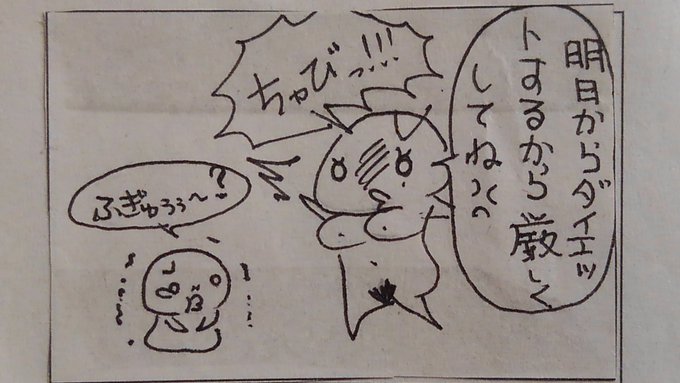 明日からダイエッ
トするから厳しく
してね
ちゃびっ!!!
ふぎゅうぅ〜?